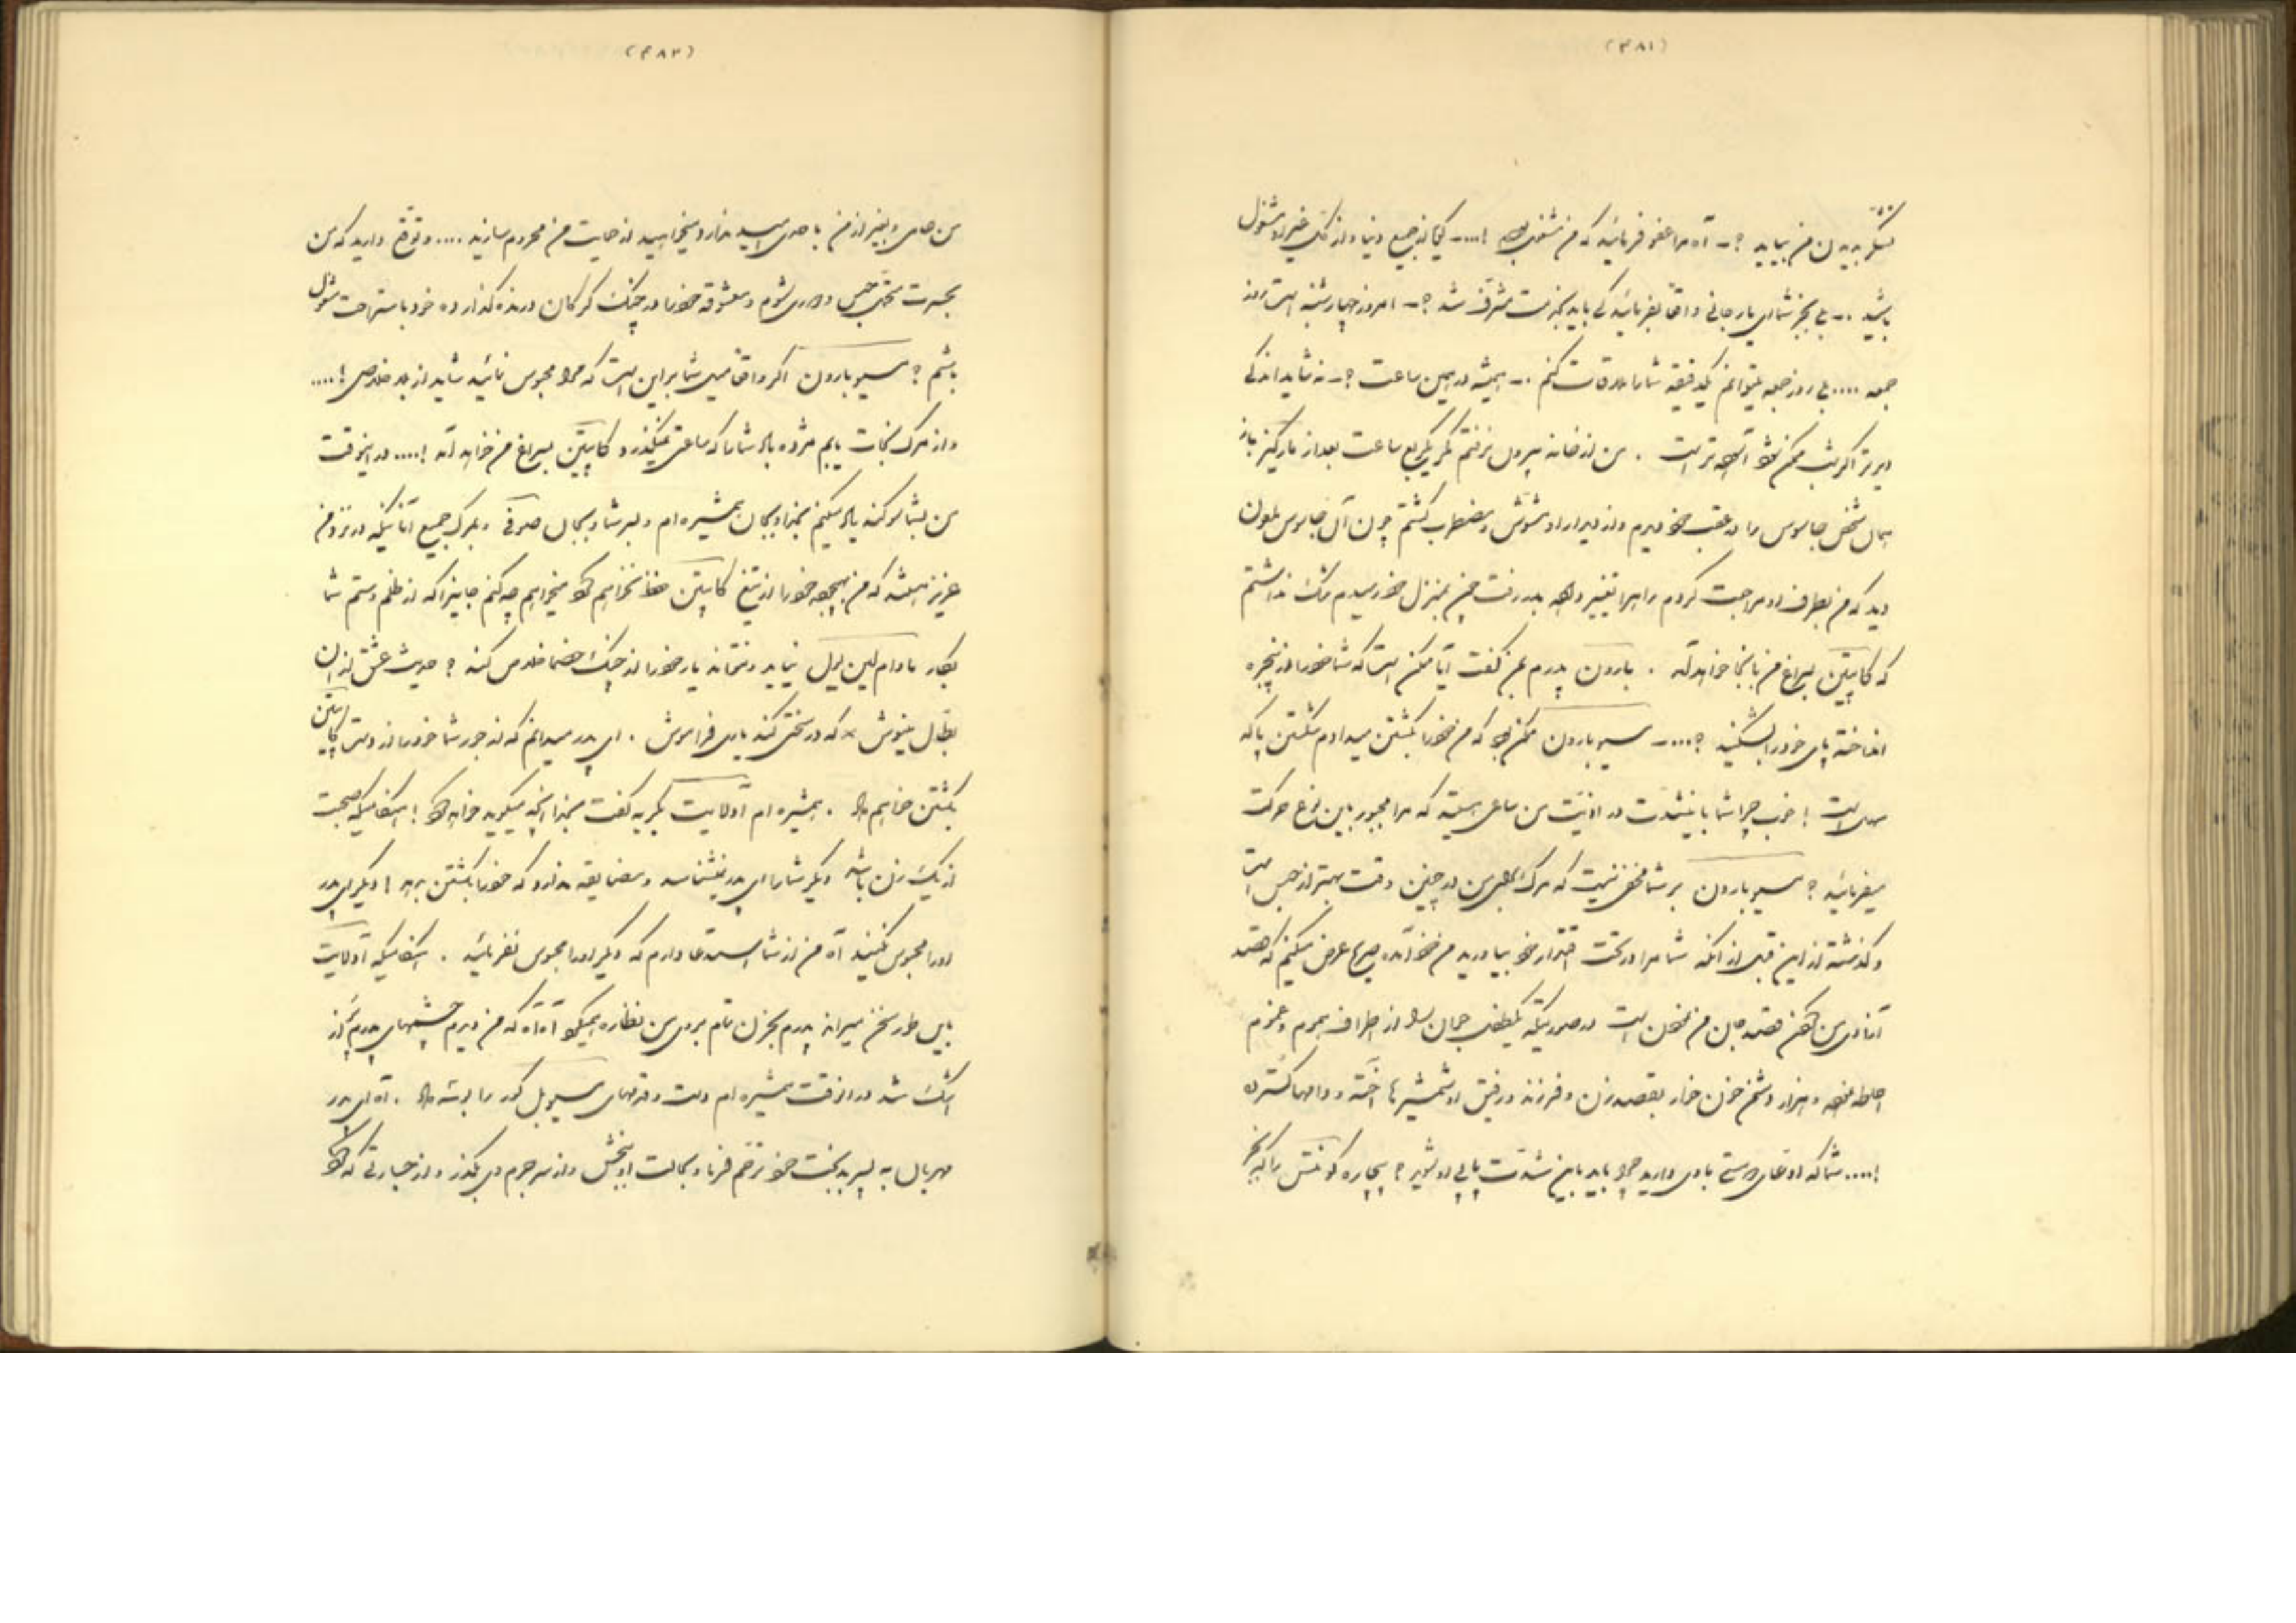 (۴۸۱)
بدیدن من بیایید ؟ - آه مرا عفو فرمائید که من
باشید .. - بلی بجز شما ای یار جانی واقعا بفرمائید کی باید بخدمت مشرف شد ؟ - امروز چهارشنبه است روز
جمعه .... بلی روز جمعه میتوانم یکدقیقه شما را ملاقات کنم .. - همیشه در همین ساعت ؟ - نه شاید اندکی
دیرتر اگر شب ممکن شود البته بهتر است . من از خانه بیرون نرفتم مگر یکربع ساعت بعد از
همان شخص جاسوس را در عقب خود دیدم و از دیدار او مشوش و مضطرب گشتم چون آن جاسوس ملعون
دید که من بطرف او مراجعت کردم راه را تغییر داده بدر رفت چون بمنزل خود رسیدم شک نداشتم
که کاپیتن بسراغ من بانجا خواهد آمد . بارون پدرم بمن گفت آیا ممکن است که شما خود را از پنجره
انداخته پای خود را بشکنید ؟ .... - مسیو بارون ممکن بود که من خود را بکشتن میدادم شکستن پا که
سهل است ! خوب چرا شما باینشدت در اذیت من ساعی هستید که مرا مجبور باین نوع حرکت
میفرمائید ؟ مسیو بارون بر شما مخفی نیست که مرگ برای من در چنین وقت بهتر از حبس است
و گذشته از این قبل از آنکه شما مرا در تحت اقتدار خود بیاورید من خود آمده صریحا عرض میکنم که قصد
آزادی من کردن قصد جان من نمودن است در صورتیکه یکطرف جهان را از اطراف هجوم و غموم
احاطه نموده و هزار دشمن خون خوار بقصد زن و فرزند و رفیق او شمشیرها آخته و دامها گسترده
! .... شما که ادعای دوستی با وی دارید چرا باید باین شدت پاپی او شوید ؟ بیچاره
(۴۸۲)
من حامی و بغیر از من با احدی امید ندارد میخواهید از حمایت من محروم سازید .... و توقع دارید که من
حبس و معشوقه خود را در چنگ گرگان درنده گذارده خود باستراحت مشغول
باشم ؟ مسیو بارون اگر واقعا میل شما بر این است که مرا محبوس نمائید شاید از بلا خلاصی ! ....
و از مرگ نجات یابم مژده باد شما را که ساعتی نمیگذرد کاپیتن بسراغ من خواهد آمد ! .... در اینوقت
من بشما سوگند یاد میکنم بخدا و بجان همشیره ام و بسر شما و بجان صوفی و بمرگ جمیع آنانیکه در نزد من
عزیز هستند که من بهیچوجه خود را از تیغ کاپیتن حفظ نخواهم کرد میخواهم چه کنم جانیرا که از ظلم و ستم شما
بکار مادام لین ویل نیاید و نتواند یار خود را از چنگ خصما خلاص کند ؟ حدیث عشق از آن
بطال منیوش × که در سختی کند یاری فراموش . ای پدر میدانم که از جور شما خود را از دست کاپیتن
بکشتن خواهم داد . همشیره ام آدلائیت بگریه گفت بخدا آنچه میگوید خواهد کرد ! هنگامیکه صحبت
از یک زن باشد دیگر شما را ای پدر نمیشناسد و مضایقه ندارد که خود را بکشتن بدهد ! دیگر ای پدر
او را محبوس نکنید آه من از شما استدعا دارم که دیگر او را محبوس نفرمائید . هنگامیکه آدلائیت
باین طور سخن میراند پدرم بحزن تمام بروی من نظاره میکرد آه آه که من دیدم چشمهای پدرم پر از
اشک شد در آنوقت همشیره ام دست و قدمهای مسیو بل کور را بوسه داد . آه ای پدر
مهربان به پسر بدبخت خود ترحم فرما و بحالت او ببخش و از سر جرم وی بگذر و از جسارتی که کرده